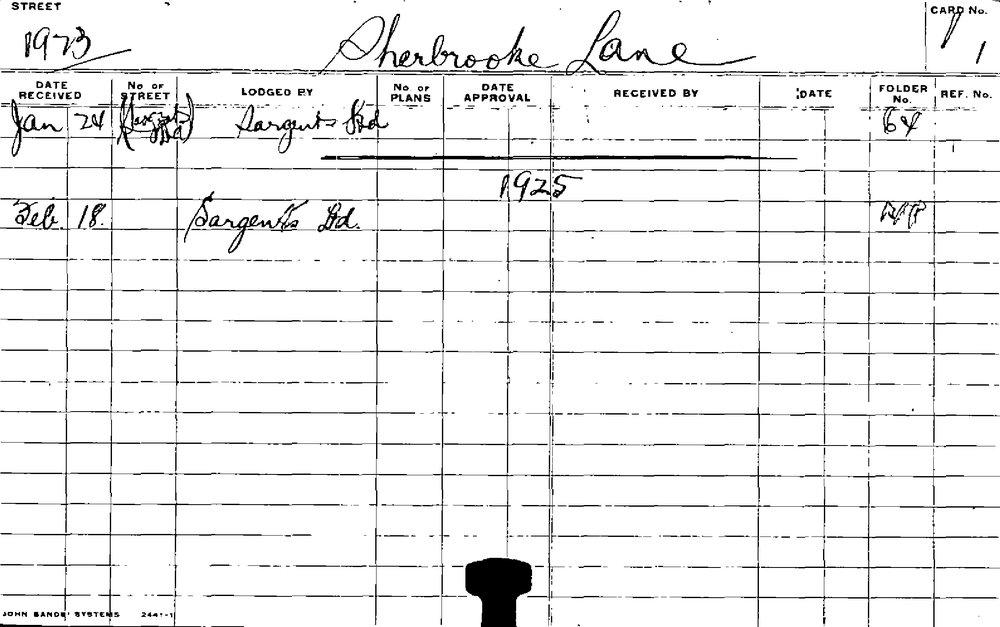 STREET CARD No.
1923 Sherbrooke Lane 1
DATE RECEIVED No OF STREET LODGED BY No OF PLANS DATE APPROVAL RECEIVED BY DATE FOLDER No. REF. No.
Jan 24 (Sargents Ltd) Sargents Ltd 64
1925
Feb. 18. Sargents Ltd.
JOHN SANDS' SYSTEMS 2441-1